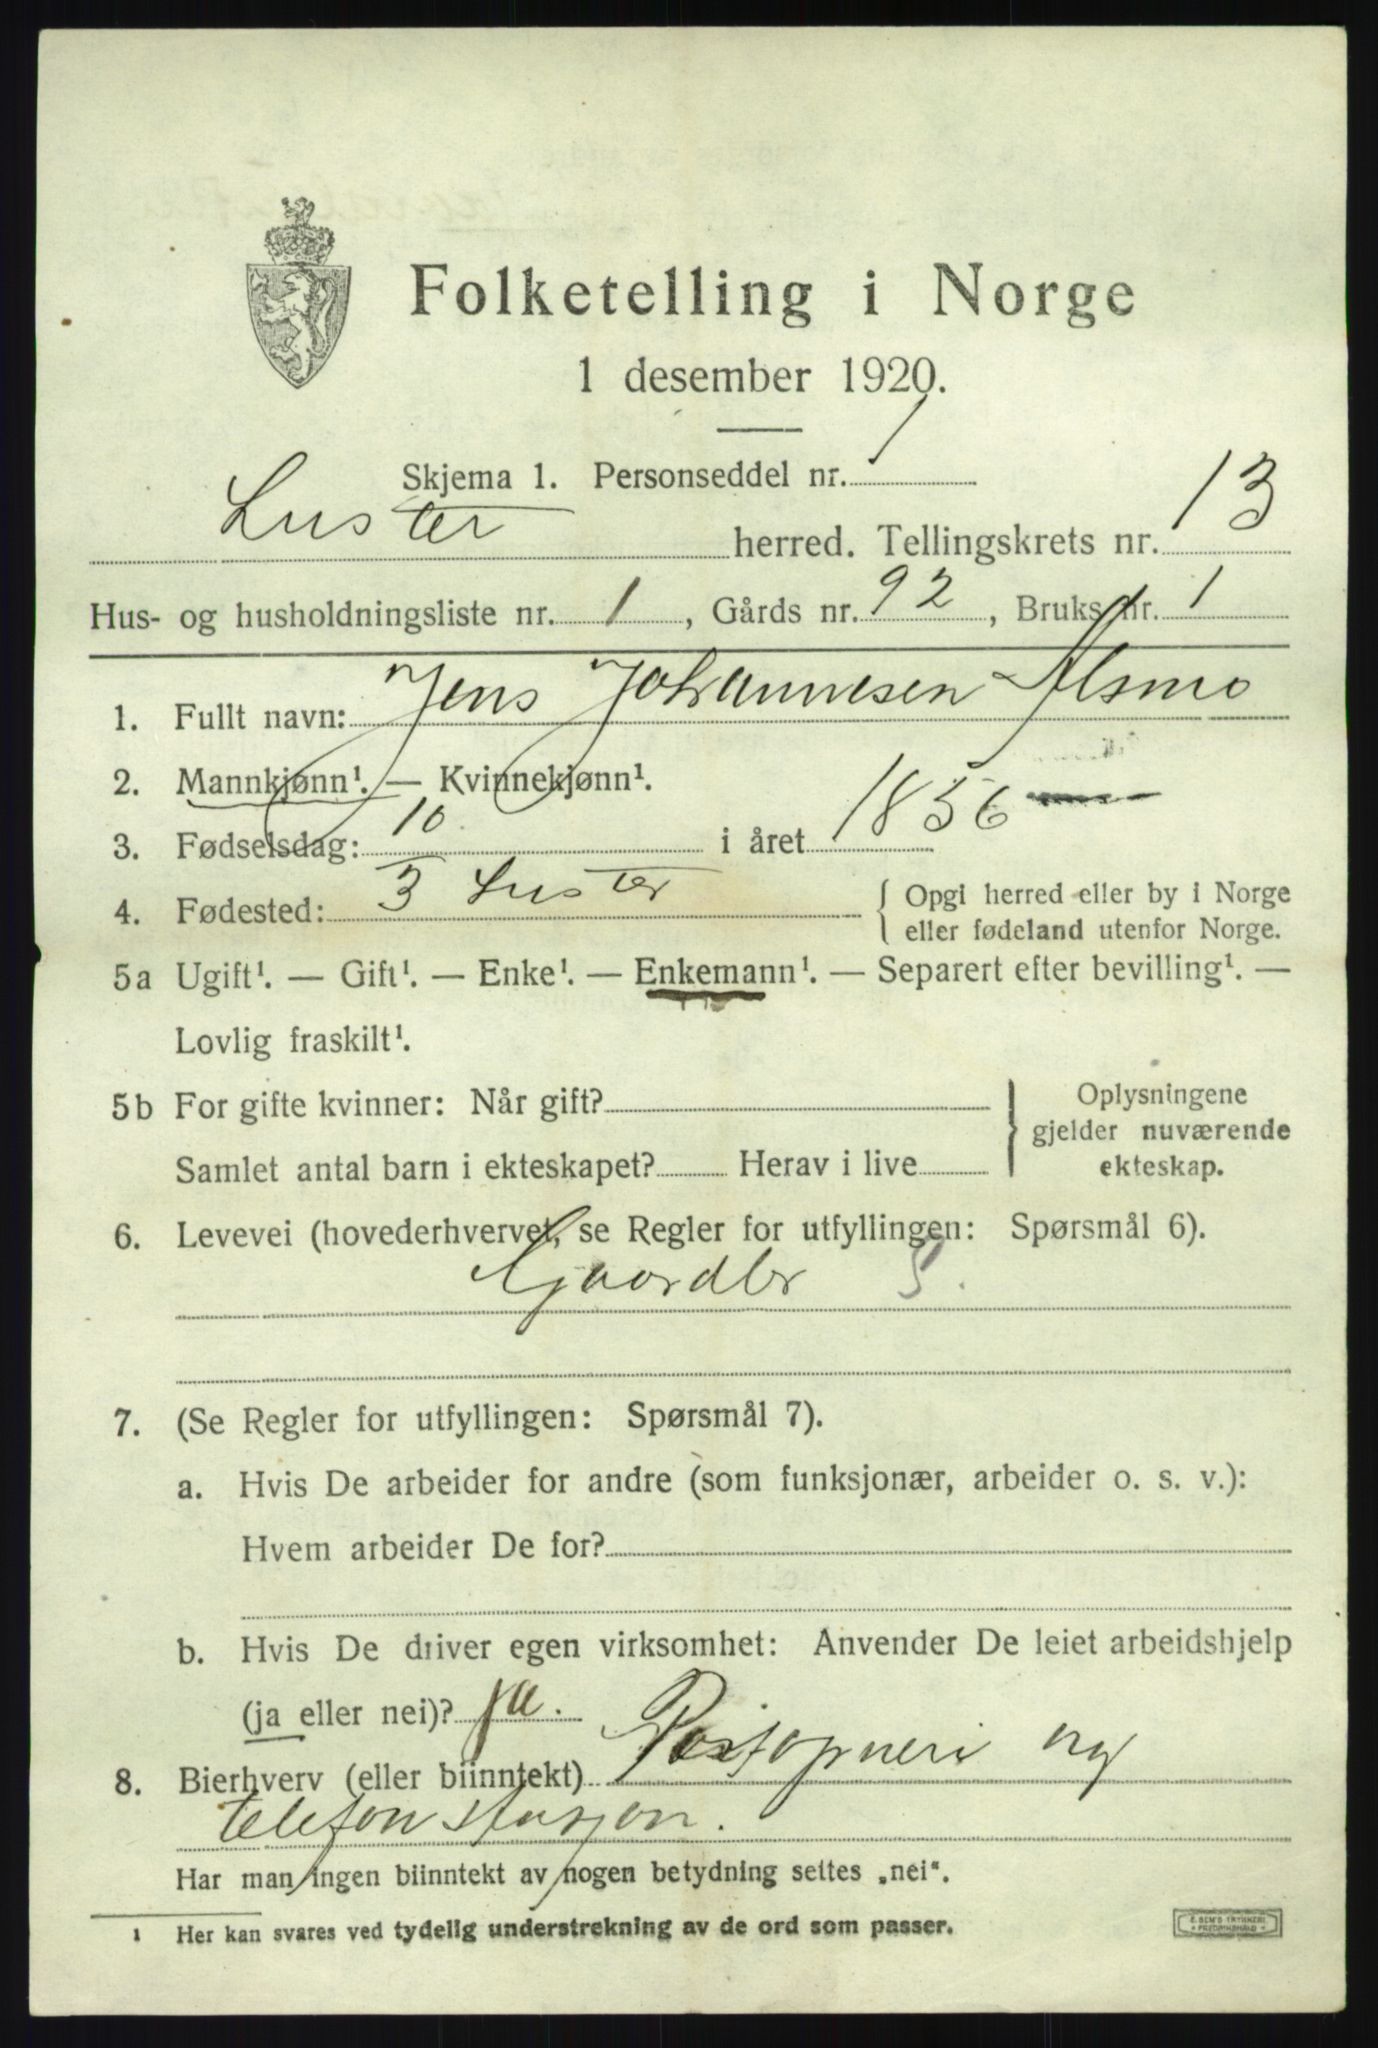 Folketelling i Norge
1 desember 1920.
Skjema 1. Personseddel nr. 1
Luster herred. Tellingskrets nr. 13
Hus- og husholdningsliste nr. 1, Gårds nr. 92, Bruks nr. 1
1. Fullt navn: Jens Johannesen Alsmo
2. Mannkjønn¹. — Kvinnekjønn¹.
3. Fødselsdag: 10/3 i året 1856
4. Fødested: Luster { Opgi herred eller by i Norge
eller fødeland utenfor Norge.
5a Ugift¹. — Gift¹. — Enke¹. — Enkemann¹. — Separert efter bevilling¹. —
Lovlig fraskilt¹.
5b For gifte kvinner: Når gift? } Oplysningene
gjelder nuværende
Samlet antal barn i ekteskapet? Herav i live
ekteskap.
6. Levevei (hovederhvervet, se Regler for utfyllingen: Spørsmål 6).
Gaardbr S.
7. (Se Regler for utfyllingen: Spørsmål 7).
a. Hvis De arbeider for andre (som funksjonær, arbeider o. s. v.):
Hvem arbeider De for?
b. Hvis De driver egen virksomhet: Anvender De leiet arbeidshjelp
(ja eller nei)? ja.
8. Bierhverv (eller biinntekt) Postopneri og
telefonstasjon.
Har man ingen biinntekt av nogen betydning settes „nei“.
¹ Her kan svares ved tydelig understrekning av de ord som passer.
E. SEM'S TRYKKERI
FREDRIKSHALD